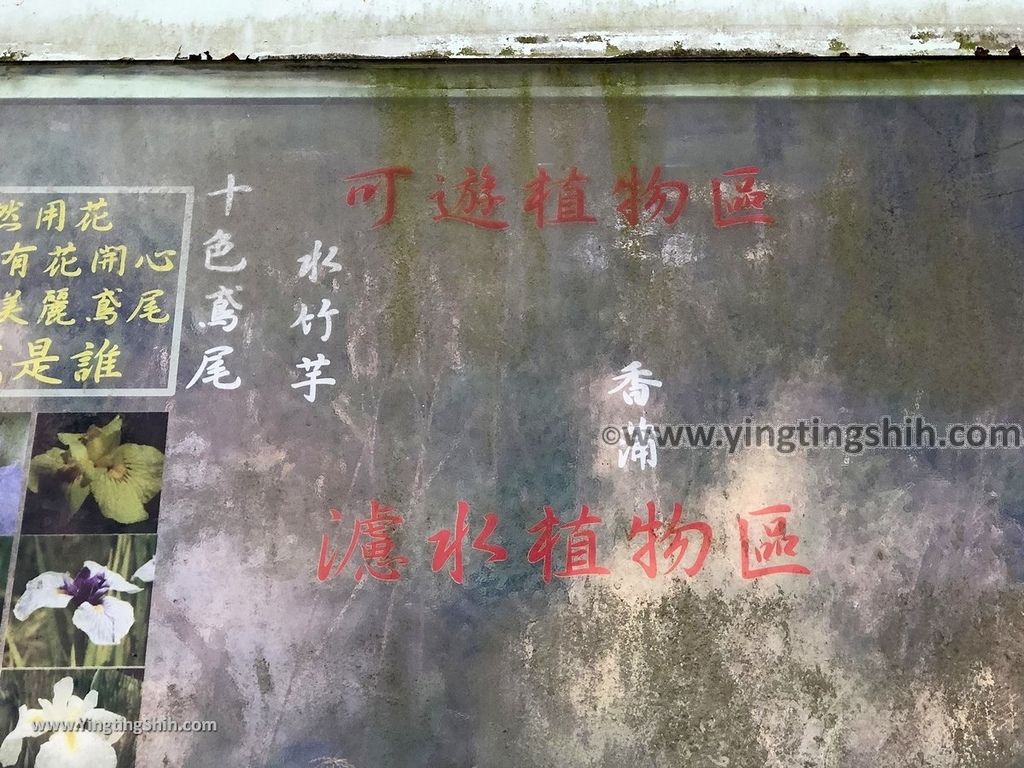 然用花
有花開心
美麗鳶尾
是誰
十色鳶尾
水竹芋
可遊植物區
香蒲
濾水植物區
©www.yingtingshih.com
www.YingtingShih.com